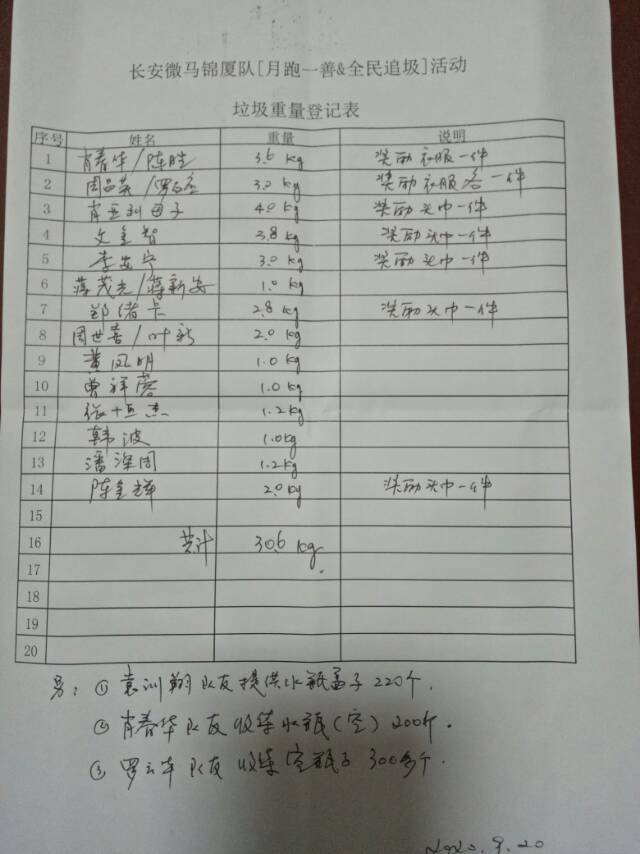 长安微马锦厦队[月跑一善&全民追圾]活动
垃圾重量登记表
序号 姓名 重量 说明
1 肖春华/陈胜 3.6 kg 奖励衣服一件
2 3.0 kg 奖励衣服各一件
3 肖亚利母子 4.0 kg 奖励头巾一件
4 文金智 3.8 kg 奖励头巾一件
5 李安宁 3.0 kg 奖励头巾一件
6 蒋茂光/蒋新安 1.0 kg
7 邹绪卡 2.8 kg 奖励头巾一件
8 周世喜/叶新 2.0 kg
9 黄凤明 1.0 kg
10 曾祥蓉 1.0 kg
11 张十五杰 1.2 kg
12 韩波 1.0 kg
13 潘深周 1.2 kg
14 陈金辉 2.0 kg 奖励头巾一件
15
16 共计 30.6 kg
17
18
19
20
另：① 袁训翔队友提供水瓶盖子220个.
② 肖春华队友收集水瓶(空)200个.
③ 罗云华队友收集空瓶子300多个.
2020.9.20